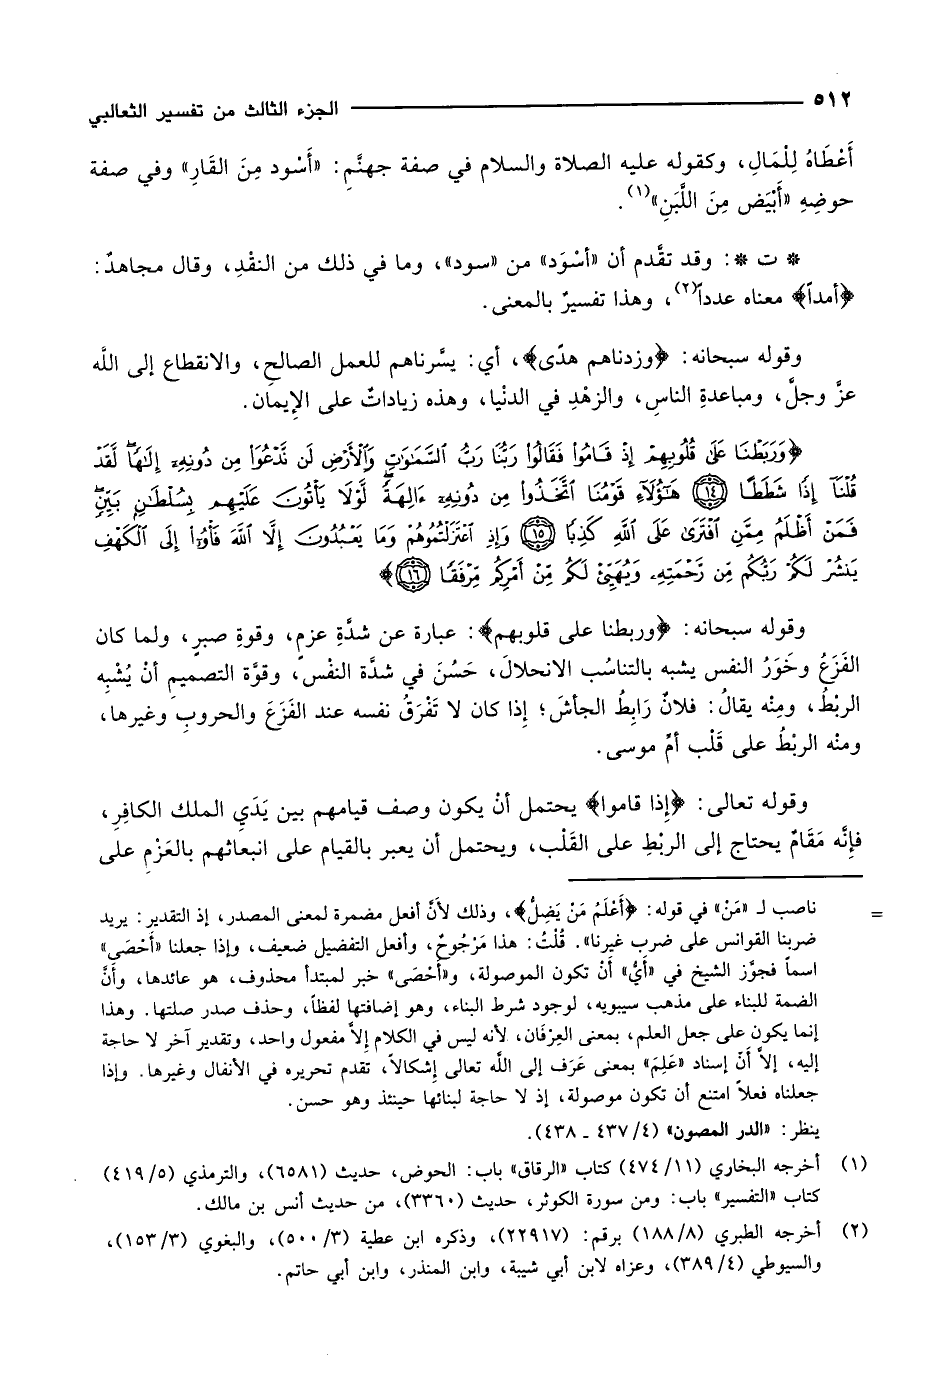 ٥١٢ الجزء الثالث من تفسير الثعالبي
أَعْطَاهُ لِلْمَالِ، وكقوله عليه الصلاة والسلام في صفة جهنَّمِ: «أَسْود مِنَ القَارِ» وفي صفة
حوضِهِ «أَبْيَض مِنَ اللَّبَنِ»(١).
* ت *: وقد تقدَّم أن «أسْوَد» من «سود»، وما في ذلك من النقْدِ، وقال مجاهدٌ:
﴿أمداً﴾ معناه عدداً(٢)، وهذا تفسيرٌ بالمعنى.
وقوله سبحانه: ﴿وزدناهم هدًى﴾، أي: يسَّرناهم للعمل الصالحِ، والانقطاع إلى اللَّه
عزَّ وجلَّ، ومباعدةِ الناسِ، والزهْدِ في الدنْيا، وهذه زياداتٌ على الإِيمان.
﴿وَرَبَطْنَا عَلَىٰ قُلُوبِهِمْ إِذْ قَامُوا۟ فَقَالُوا۟ رَبُّنَا رَبُّ السَّمَٰوَٰتِ وَالْأَرْضِ لَن نَّدْعُوَا۟ مِن دُونِهِۦٓ إِلَٰهًا ۖ لَّقَدْ
قُلْنَآ إِذًا شَطَطًا ﴿١٤﴾ هَٰٓؤُلَآءِ قَوْمُنَا ٱتَّخَذُوا۟ مِن دُونِهِۦٓ ءَالِهَةً ۖ لَّوْلَا يَأْتُونَ عَلَيْهِم بِسُلْطَٰنٍۭ بَيِّنٍ ۖ
فَمَنْ أَظْلَمُ مِمَّنِ ٱفْتَرَىٰ عَلَى ٱللَّهِ كَذِبًا ﴿١٥﴾ وَإِذِ ٱعْتَزَلْتُمُوهُمْ وَمَا يَعْبُدُونَ إِلَّا ٱللَّهَ فَأْوُۥٓا۟ إِلَى ٱلْكَهْفِ
يَنشُرْ لَكُمْ رَبُّكُم مِّن رَّحْمَتِهِۦ وَيُهَيِّئْ لَكُم مِّنْ أَمْرِكُم مِّرْفَقًا ﴿١٦﴾﴾
وقوله سبحانه: ﴿وربطنا على قلوبهم﴾: عبارة عن شدَّةِ عزمٍ، وقوةِ صبرٍ، ولما كان
الفَزَعُ وخَوَرُ النفس يشبه بالتناسُب الانحلالَ، حَسُنَ في شدَّة النفْس، وقوَّة التصميمِ أنْ يُشْبِه
الربْطُ، ومِنْه يقالُ: فلانٌ رَابِطُ الجأشَ؛ إِذا كان لا تَفْرَقُ نفسه عند الفَزَعَ والحروبِ وغيرها،
ومنْه الربْطُ على قَلْب أمِّ موسى.
وقوله تعالى: ﴿إِذا قاموا﴾ يحتمل أنْ يكون وصف قيامهم بين يَدَيِ الملك الكافِرِ،
فإِنَّه مَقَامٌ يحتاج إلى الربْطِ على القَلْب، ويحتمل أن يعبر بالقيام على انبعاثهم بالعَزْمِ على
= ناصب لـ «مَنْ» في قوله: ﴿أَعْلَمُ مَنْ يَضِلُّ﴾، وذلك لأنَّ أفعل مضمرة لمعنى المصدر، إذ التقدير: يريد
ضربنا القوانس على ضرب غيرنا». قُلْتُ: هذا مَرْجُوحٌ، وأفعل التفضيل ضعيف، وإذا جعلنا «أَحْصَى»
اسماً فجوَّز الشيخ في «أَيُّ» أنْ تكون الموصولة، و«أَحْصَى» خبر لمبتدأ محذوف، هو عائدها، وأنَّ
الضمة للبناء على مذهب سيبويه، لوجود شرط البناء، وهو إضافتها لفظاً، وحذف صدر صلتها. وهذا
إنما يكون على جعل العلم، بمعنى العِرْفَان، لأنه ليس في الكلام إلاَّ مفعول واحد، وتقدير آخر لا حاجة
إليه، إلاَّ أَنَّ إسناد «عَلِمَ» بمعنى عَرَف إلى اللَّه تعالى إشكالاً، تقدم تحريره في الأنفال وغيرها. وإذا
جعلناه فعلاً امتنع أن تكون موصولة، إذ لا حاجة لبنائها حينئذ وهو حسن.
ينظر: «الدر المصون» (٤/ ٤٣٧ - ٤٣٨).
(١) أخرجه البخاري (١١/ ٤٧٤) كتاب «الرقاق» باب: الحوض، حديث (٦٥٨١)، والترمذي (٥/ ٤١٩)
كتاب «التفسير» باب: ومن سورة الكوثر، حديث (٣٣٦٠)، من حديث أنس بن مالك.
(٢) أخرجه الطبري (٨/ ١٨٨) برقم: (٢٢٩١٧)، وذكره ابن عطية (٣/ ٥٠٠)، والبغوي (٣/ ١٥٣)،
والسيوطي (٤/ ٣٨٩)، وعزاه لابن أبي شيبة، وابن المنذر، وابن أبي حاتم.